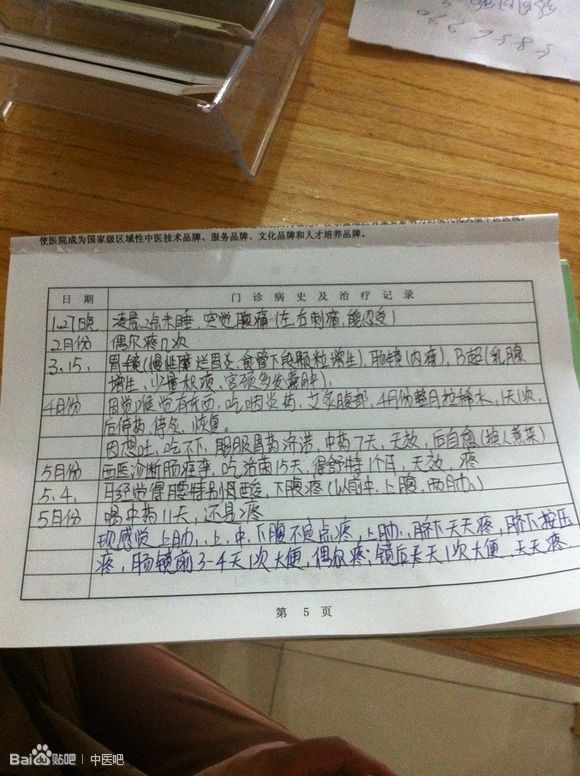 使医院成为国家级区域性中医技术品牌、服务品牌、文化品牌和人才培养品牌。
日期 门诊病史及治疗记录
1.27晚 凌晨2点未睡,突觉腹痛(左右刺痛,能忍受)
2月份 偶尔疼几次
3.15. 胃镜(慢性糜烂胃炎,食管下段颗粒增生),肠镜(内痔),B超(乳腺
增生,少量积液,宫颈多发囊肿).
4月份 因觉喉咙有东西,吃咽炎药,艾灸腹部,4月份整日拉稀水,1天1次,
后停药,停灸,恢复。
因想吐,吃不下,服胃药,中药7天,无效,后自愈
5月份 西医诊断肠痉挛,吃15天,得舒特1个月,无效,疼
5.4. 月经觉得腰特别骨酸,下腹疼(以前中、上腹,两肋)
5月份 喝中药11天,还是疼
现感觉上肋、上、中、下腹不定点疼,上肋、脐下天天疼,脐下按压
疼,肠镜前3-4天1次大便,偶尔疼;镜后天天1次大便,天天疼
第 5 页
Bai 贴吧 | 中医吧